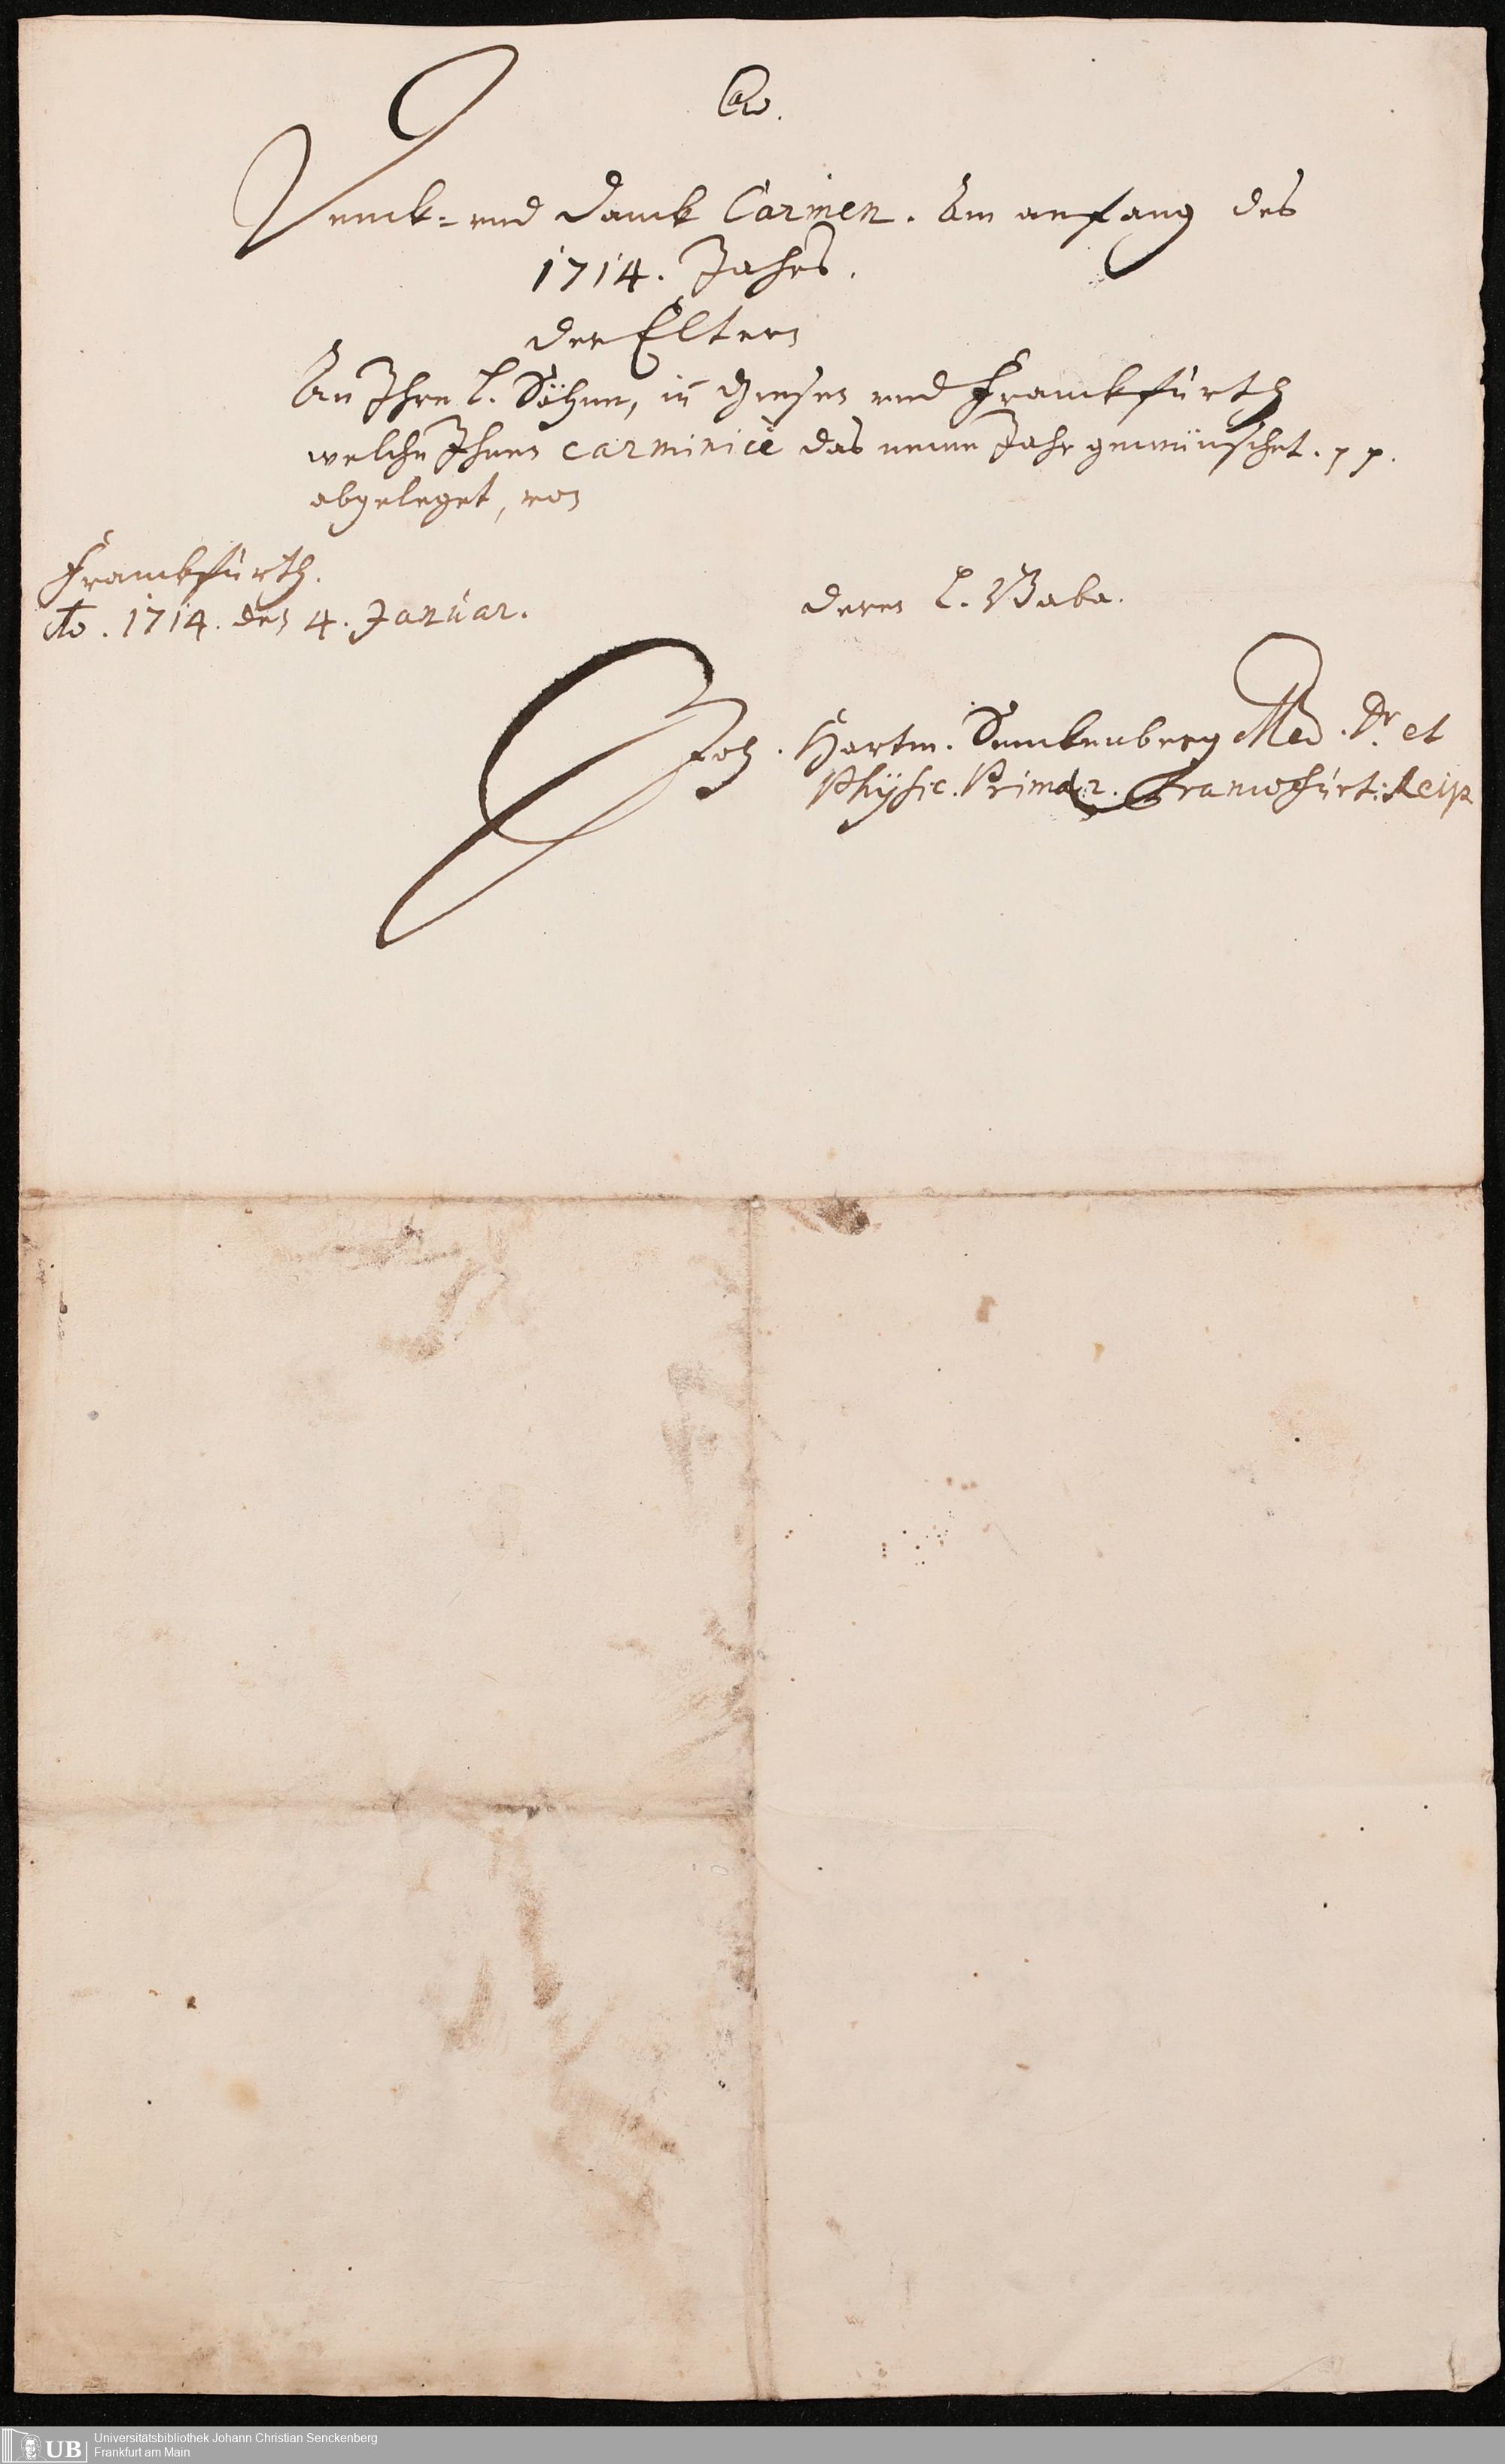 Denck- und Danck Carmen. Am anfang des
1714. Jahrs.
der Eltern
An Ihre l. Söhne, in Giesen und Franckfürth
welche Ihnen carminicè das neue Jahr gewünschet. pp.
abgeleget, von
Franckfürth.
Ao. 1714. den 4. Januar.
deren l. Baba.
Joh. Hartm. Senckenberg Med. Dr. et
Physic. Primar. Francofurt: Reip
UB
Universitätsbibliothek Johann Christian Senckenberg
Frankfurt am Main